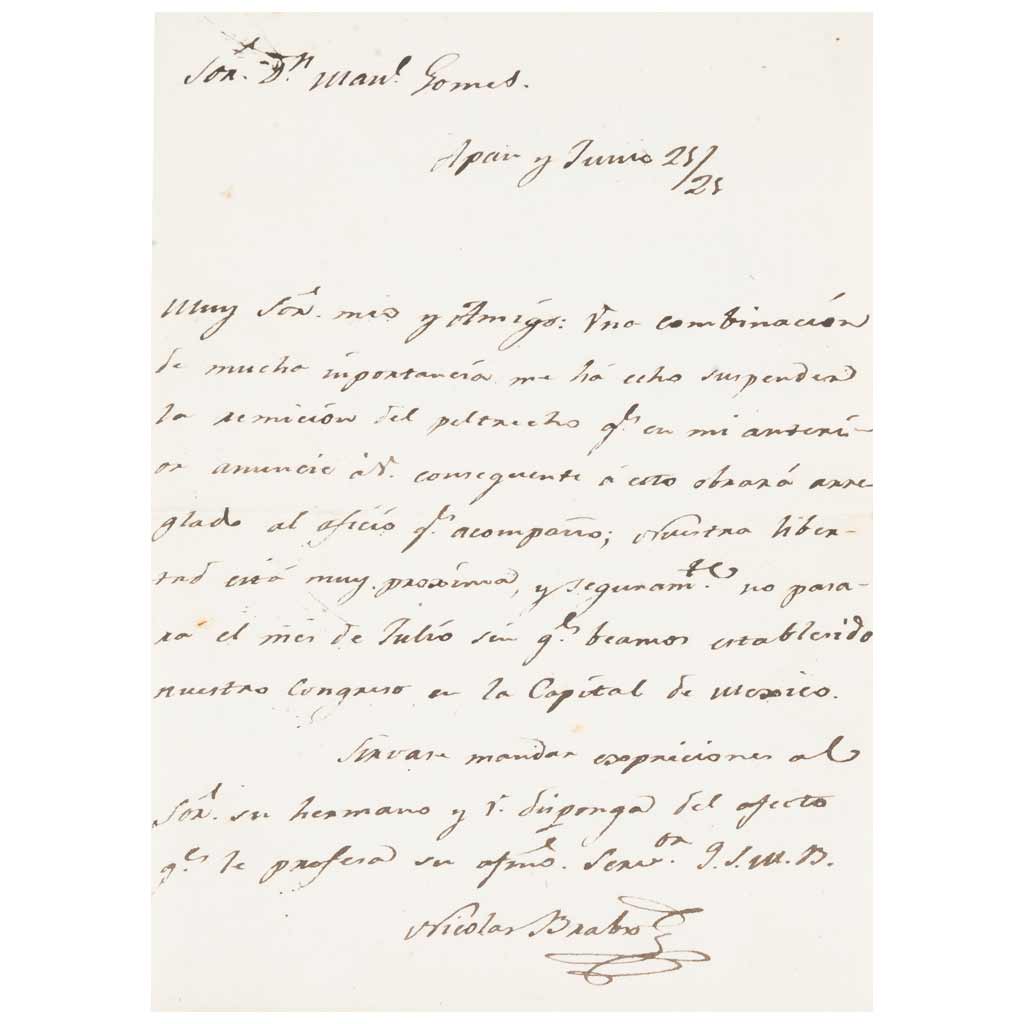 Sor. Dn. Manl. Gomes.
Apan y Junio 25/
21
Muy Sor. mio y Amigo: Vna combinación
de mucha inportancia me há echo suspender
la remición del peltrecho qe. en mi anteri-
or anuncie á V. consequente á esto obrará arre-
glado al oficio qe. acompaño; Nuestra liber-
tad está muy proxima, y seguramte. no pasa-
rá el mes de Julio sin qe. beamos establesido
nuestro Congreso en la Capital de Mexico.
Sirvase mandar expriciones al
Sor. su hermano y V. disponga del afecto
qe. le profesa su afmo. Servor. Q.S.M.B.
Nicolas Brabo